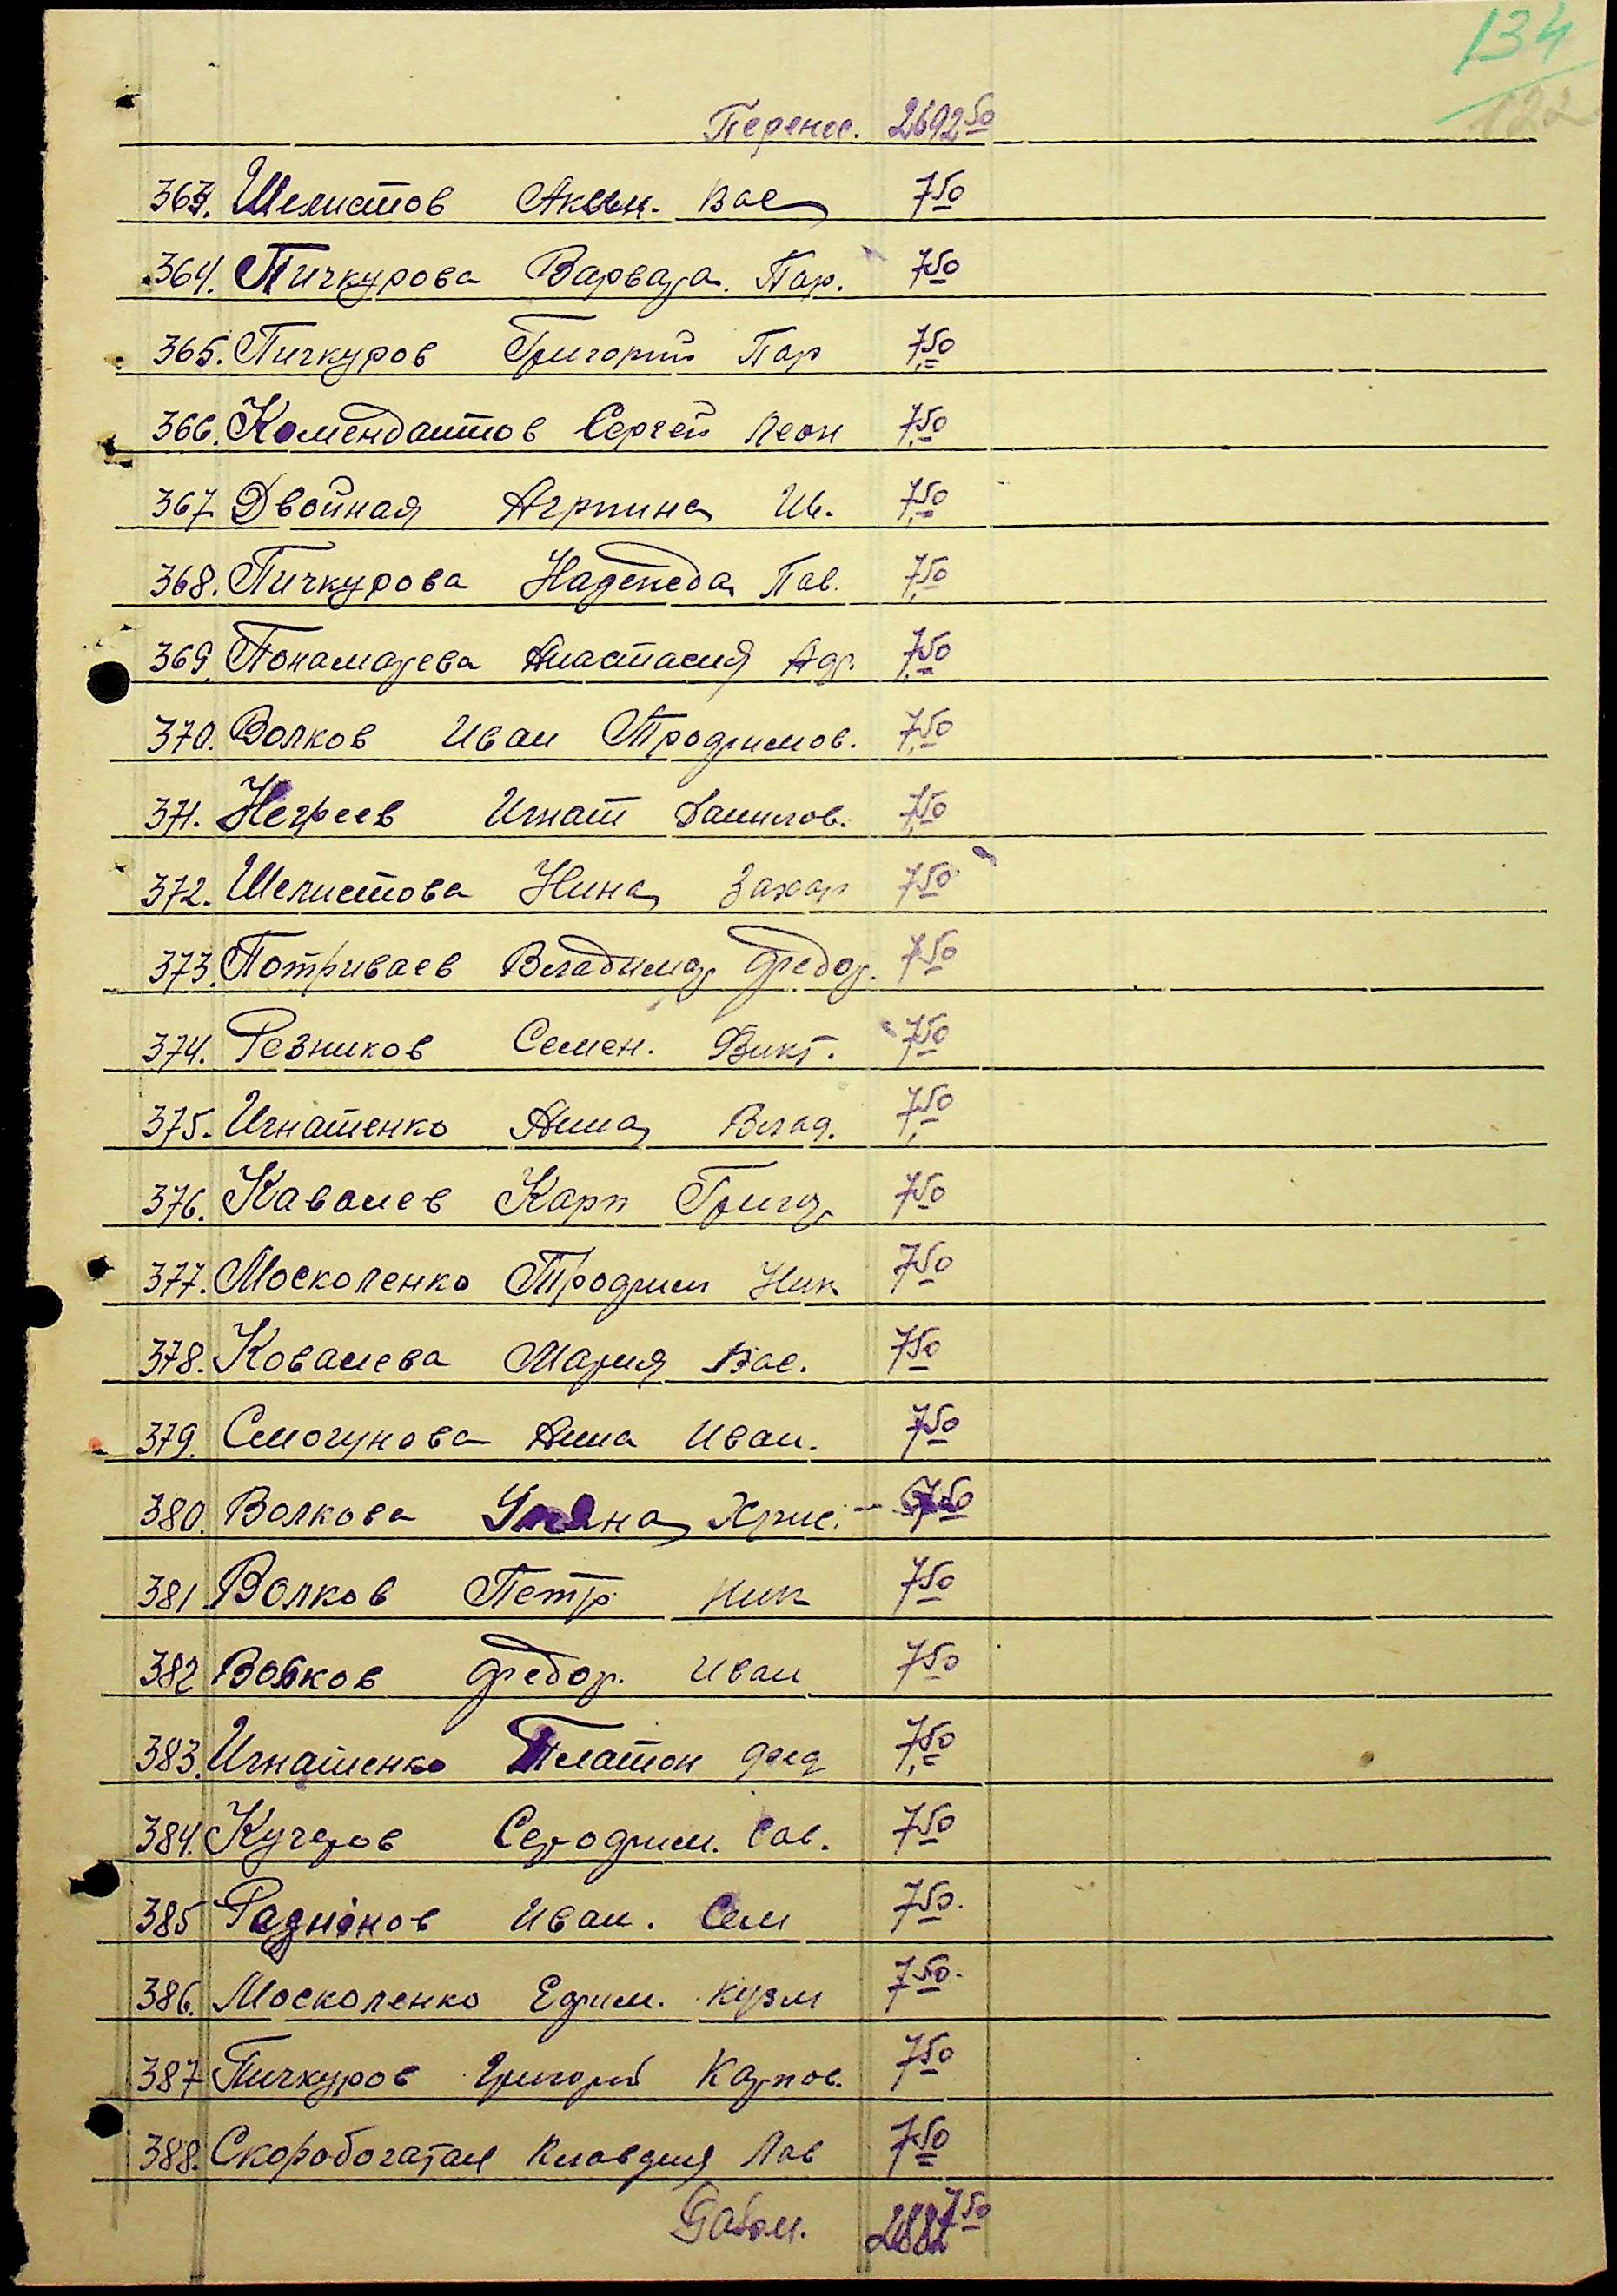 134
122
Перенес. 2692 50
363. Шелистов Аким. Вас 7 50
364. Пичкурова Варвара. Пар. 7 50
365. Пичкуров Григорий Пар 7,50
366. Комендантов Сергей Леон 7,50
367 Двойная Агрпина Ив. 7,50
368. Пичкурова Надежда Пав. 7,50
369. Понамарева Анастасия Адр. 7,50
370. Волков Иван Трофимов. 7,50
371. Негреев Игнат Данилов. 7,50
372. Шелистова Нина Захар 7 50
373. Потриваев Владимир Федор. 7 50
374. Резников Семен. Викт. 7 50
375. Игнатенко Анна Влад. 7,50
376. Кавалев Карп Григор 7 50
377. Москаленко Трофим Ник 7 50
378. Ковалева Мария Вас. 7 50
379. Смогунова Анна Иван. 7 50
380. Волкова Уляна Хрис. - 7 50
381 Волков Петр Ник 7 50
382 Волков Федор. Иван 7 50
383. Игнатенко Платон Фед 7,50
384. Кучеров Серофим. Сав. 7 50
385 Радионов Иван. Сем 7 50.
386. Москаленко Ефим. Кузм 7 50.
387 Пичкуров Григорий Карпов. 7 50
388. Скоробогатая Клавдия Лав 7 50
2887 50